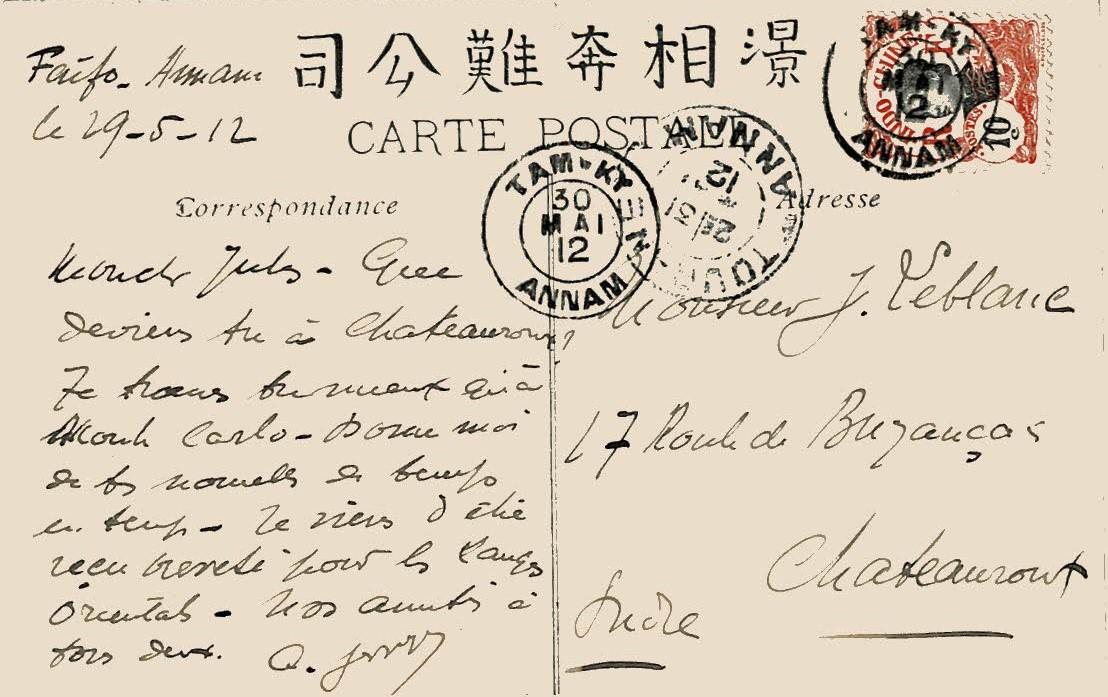 Faifo - Annam
le 29-5-12
司公難奔相澋
CARTE POSTALE
Correspondance
Mon cher Jules - Que
deviens tu à Chateauroux?
Te trouves tu mieux qu'à
Monte Carlo - Donne moi
de tes nouvelles de temps
en temps - Je viens d'être
reçu breveté pour les Langues
Orientales - Nos amitiés à
tous deux.
TAM-KY
30
MAI
12
ANNAM
TOURANE
31
12
ANNAM
TAM-KY
30
MAI
12
ANNAM
INDO-CHINE
POSTES
10c
Adresse
Monsieur J. Leblanc
17 Route de Buzançais
Chateauroux
Indre